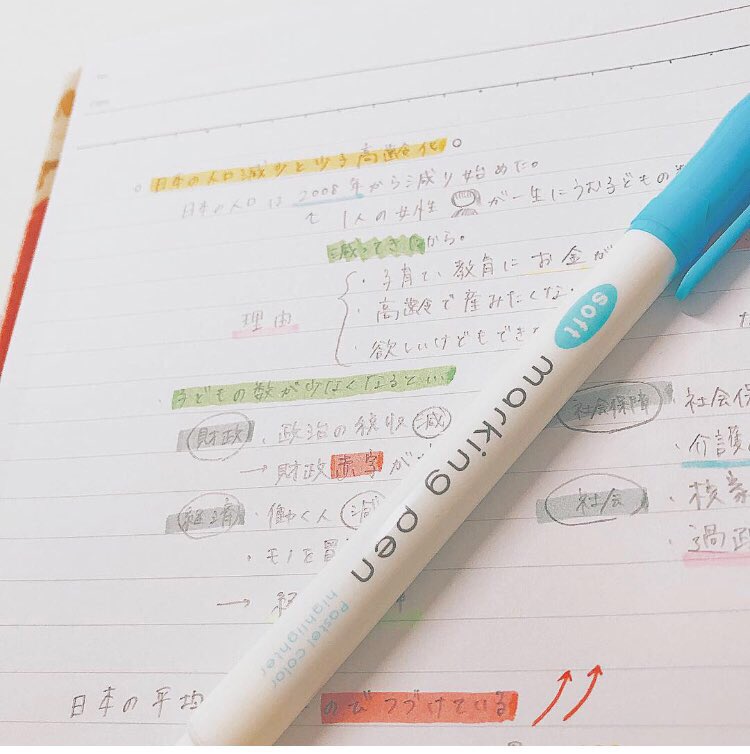 日本の人口減少と少子高齢化
日本の人口は2008年から減り始めた。
1人の女性が一生にうむ子どもの
減ってきたから。
理由
・子育て、教育にお金が
・高齢で産みたくな
・欲しいけどもでき
子どもの数が少なくなると
財政・政治の税収減
→財政赤字が
経済・働く人減
・モノを買
→経
社会保障・社会保
・介護
社会・核家
・過
日本の平均
のびつづけている
soft
marking pen
Pastel color
highlighter